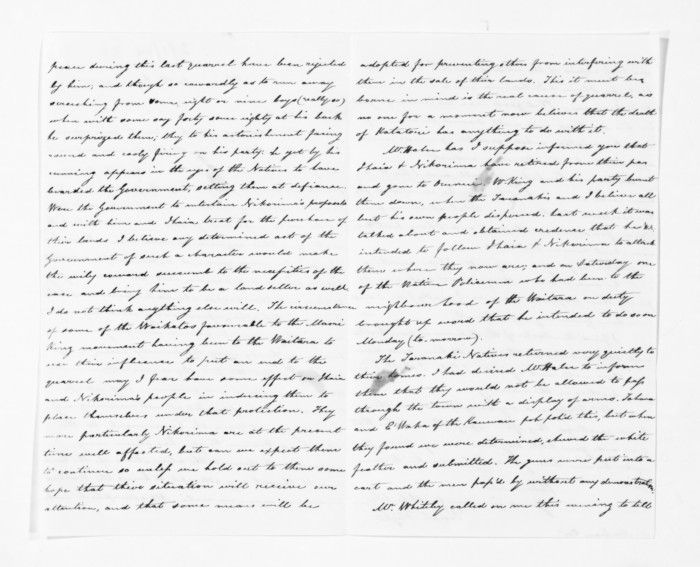 peace during this last quarrel have been rejected
by him, and though so cowardly as to run away
screeching from some eight or nine boys (really so)
when with some say forty some eighty at his back
he surprized them, they to his astonishment facing
round and cooly firing on his party: he yet by his
cunning appears in the eyes of the Natives to have
bearded the Government, setting them at defiance.
Were the Government to entertain Nikorima's proposals
and with him and Ihaia treat for the purchase of
their lands I believe any determined act of the
Government of such a character would make
the wily coward succumb to the necessities of the
case and bring him to be a land seller as well.
I do not think anything else will. The circumstance
of some of the Waikatos favourable to the Maori
King movement having been to the Waitara to
use their influence to put an end to the
quarrel may I fear have some effect on Ihaia
and Nikorima's people in inducing them to
place themselves under that protection. They
more particularly Nikorima are at the present
time well affected, but can we expect them
to continue so unless we hold out to them some
hope that their situation will receive our
attention, and that some means will be
adopted for preventing others from interfering with
them in the sale of their lands. This it must be
borne in mind is the real cause of quarrel, as
no one for a moment now believes that the death
of Katatore has anything to do with it.
Mr. Halse has I suppose informed you that
Ihaia & Nikorima have retired from their pas
and gone to W. King and his party burnt
them down, when the Taranakis and I believe all
but his own people dispersed. Last week it was
talked about and obtained credence that he
intended to follow Ihaia & Nikorima to attack
them where they now are, and on Saturday one
of the Native Policemen who had been to the
neighbourhood of the Waitara on duty
brought up word that he intended to do so on
Monday (to-morrow).
The Taranaki Natives returned very quietly to
their homes. I had desired Mr. Halse to inform
them that they would not be allowed to pass
through the town with a display of arms. Tahana
and E Waka of the Kauwau poh pohd this, but when
they found we were determined, shewed the white
feather and submitted. The guns were put into a
cart and the men pass'd by without any demonstration.
Mr. Whiteley called on me this evening to tell